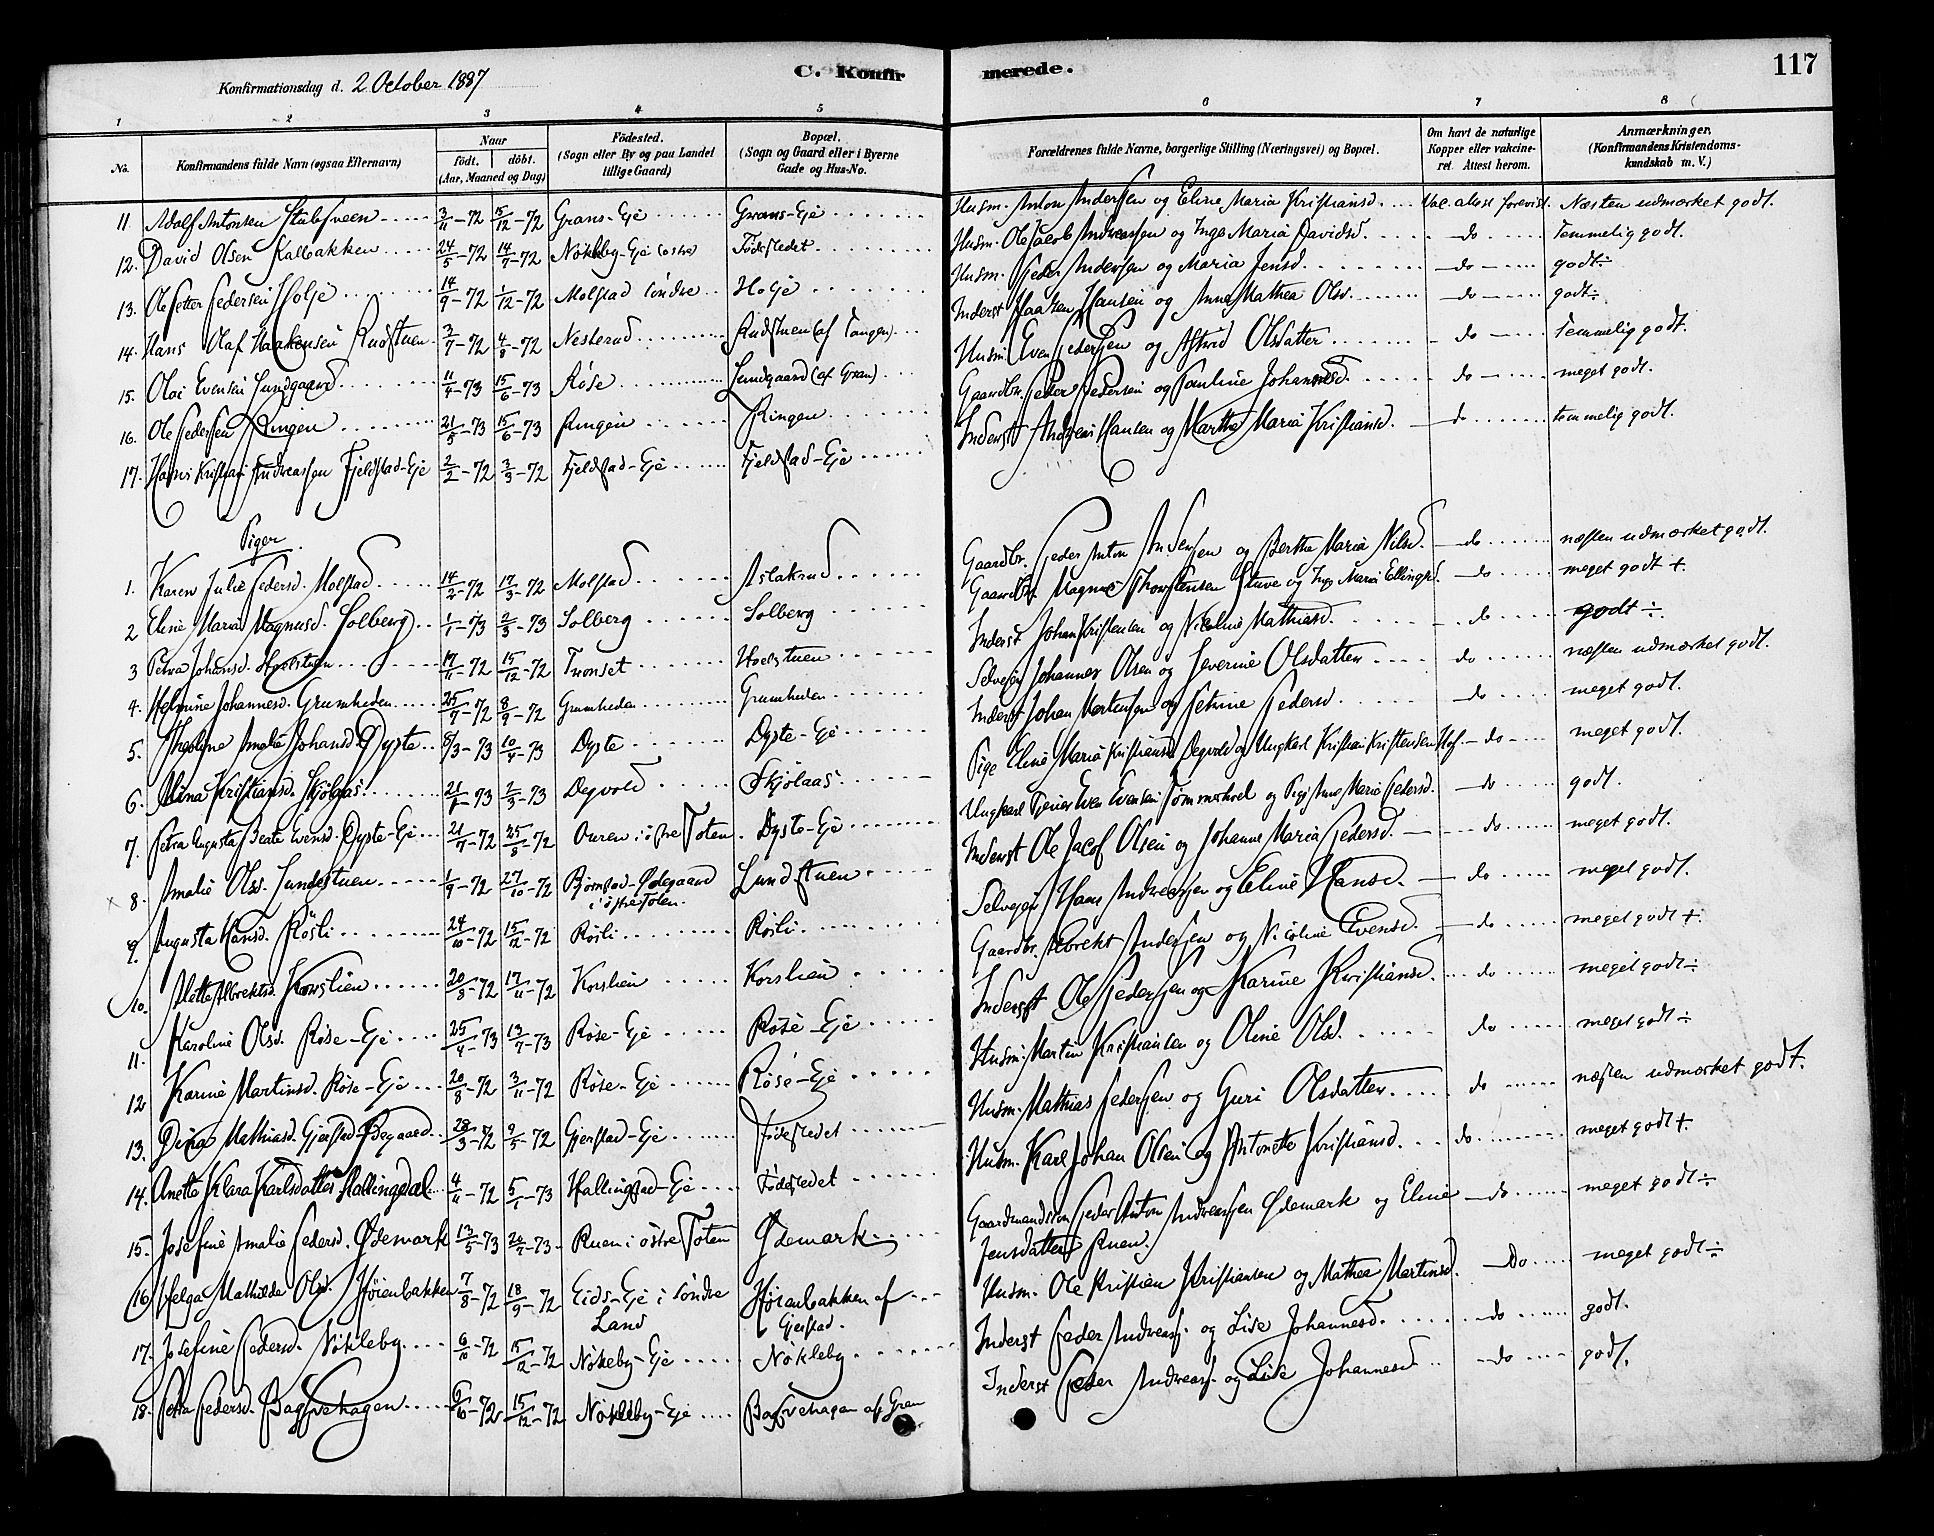 Konfirmationsdag d. 2 October 1887
C. Konfirmerede.
117
1 2 3 4 5 6 7 8
No.
Konfirmandens fulde Navn (ogsaa Efternavn)
Naar
födt. döbt.
(Aar, Maaned og Dag)
Födested.
(Sogn eller By og paa Landet
tillige Gaard)
Bopæl.
(Sogn og Gaard eller i Byerne
Gade og Hus-No.
Forældrenes fulde Navne, borgerlige Stilling (Næringsvei) og Bopæl.
Om havt de naturlige
Kopper eller vakcine-
ret. Attest herom.
Anmærkninger.
(Konfirmandens Kristendoms-
kundskab m. V.)
11. Adolf Antonsen Stubsveen 3/11-72 15/12-72 Grans-Eje Grans-Eje Husm. Anton Andersen og Eline Maria Kristiansd. Vac. attest forevist. Næsten udmærket godt.
12. David Olsen Kalbakken 24/5-72 14/7-72 Nökleby-Eje (östre) Födestedet Husm. Ole Jacob Andreassen og Inga Maria Davidsd. do temmelig godt.
13. Ole Petter Pedersen Holje 14/9-72 1/12-72 Molstad söndre Holje Husm. Peder Andersen og Maria Jensd. do godt÷
14. Hans Olaf Haakensen Rudstuen 3/7-72 4/8-72 Nesterud Rudstuen (af Tangen) Inderst Haaken Hansen og Anne Mathea Olsd. do godt÷
15. Olai Evensen Lundgaard 11/4-73 15/6-73 Röse Lundgaard (af Gran) Husm. Even Pedersen og Astrid Olsdatter do temmelig godt.
16. Ole Pedersen Ringen 21/5-73 15/6-73 Ringen Ringen Gaardbr. Peder Pedersen og Pauline Johannesd. do meget godt.
17. Hans Kristian Andreassen Fjeldstad-Eje 2/2-72 3/3-72 Fjeldstad-Eje Fjeldstad-Eje Inderst Andreas Hansen og Marthe Maria Kristiansd. do temmelig godt.
Piger
1. Karen Julie Pedersd. Molstad 14/2-72 17/3-72 Molstad Aslakrud Gaardbr. Peder Anton Andersen og Berthe Maria Nilsd. do næsten udmærket godt.
2 Eline Maria Magnusd. Solberg 1/1-73 2/3-73 Solberg Solberg Gaardbr. Magnus Thorstensen Stuve og Inge Maria Ellingsd. do meget godt +.
3 Petra Johansd. Hoelstuen 17/11-72 15/12-72 Tronset Hoelstuen Inderst Johan Kristensen og Nicoline Mathiasd. do godt ÷
4. Helmine Johannesd. Grumheden 25/7-72 8/9-72 Grumheden Grumheden Selvejer Johannes Olsen og Severine Olsdatter do næsten udmærket godt.
5. Theoline Amalie Johansd. Dyste 8/3-73 10/4-73 Dyste Dyste-Eje Inderst Johan Mortensen og Petrine Pedersd. do meget godt.
6. Alina Kristiansd. Skjölaas 21/1-73 2/3-73 Degvold Skjölaas Pige Eline Maria Kristiansd. Degvold og Ungkarl Kristian Kristensen Hof. do meget godt.
7. Petra Augusta Beate Evensd. Dyste-Eje 21/7-72 25/8-72 Ouren i östre Toten Dyste-Eje Ungkarl Tjener Even Evensen og Pige Anne Maria Pedersd. do godt.
8. Amalie Olsd. Lundstuen 1/9-72 27/10-72 Björnstad-Ødegaard i östre Toten. Lundstuen Inderst Ole Jacob Olsen og Johanne Maria Pedersd. do meget godt.
9. Augusta Hansd. Rösli 24/10-72 15/12-72 Rösli Rösli Selvejer Hans Andreassen og Eline Hansd. do meget godt.
10. Mette Albrektsd. Korslien 20/8-72 17/11-72 Korslien Korslien Gaardbr. Albrekt Andersen og Nicoline Evensd. do meget godt +.
11. Karoline Olsd. Röse-Eje 25/4-73 13/7-73 Röse-Eje Röse-Eje Inderst Ole Pedersen og Karine Kristiansd. do meget godt÷
12 Karine Martinsd. Röse-Eje 20/8-72 3/11-72 Röse-Eje Röse-Eje Husm. Martin Kristiansen og Oline Olsd. do meget godt÷
13. Dina Mathiasd. Gjerstad-Bøgaard 28/3-72 9/5-72 Gjerstad-Eje Födestedet Husm. Mathias Pedersen og Guri Olsdatter do næsten udmærket godt.
14. Anette Klara Karlsdatter Hallingdal 4/11-72 5/1-73 Hallingstad-Eje Födestedet Husm. Karl Johan Olsen og Antonette Kristiansd. do meget godt+.
15. Josefine Amalie Pedersd. Ødemark 13/5-73 20/7-73 Ruen i östre Toten Ødemark Gaardmandssön Peder Anton Andreassen Ødemark og Eline Jensdatter Ruen. do meget godt÷
16. Helga Mathilde Olsd. Höienbakken 7/8-72 18/9-72 Eids-Eje i söndre Land Höienbakken af Gjerstad. Husm. Ole Kristian Kristiansen og Mathea Martinsd. Do meget godt÷
17. Josefine Pedersd. Nökleby 6/10-72 15/12-72 Nökleby-Eje Nökleby Inderst Peder Andreass. og Lise Johannesd. do godt.
18. Petra Pedersd. Bagstvehagen 6/10-72 15/12-72 Nökleby-Eje Bagstvehagen af Gran Inderst Peder Andreass. og Lise Johannesd. do godt.